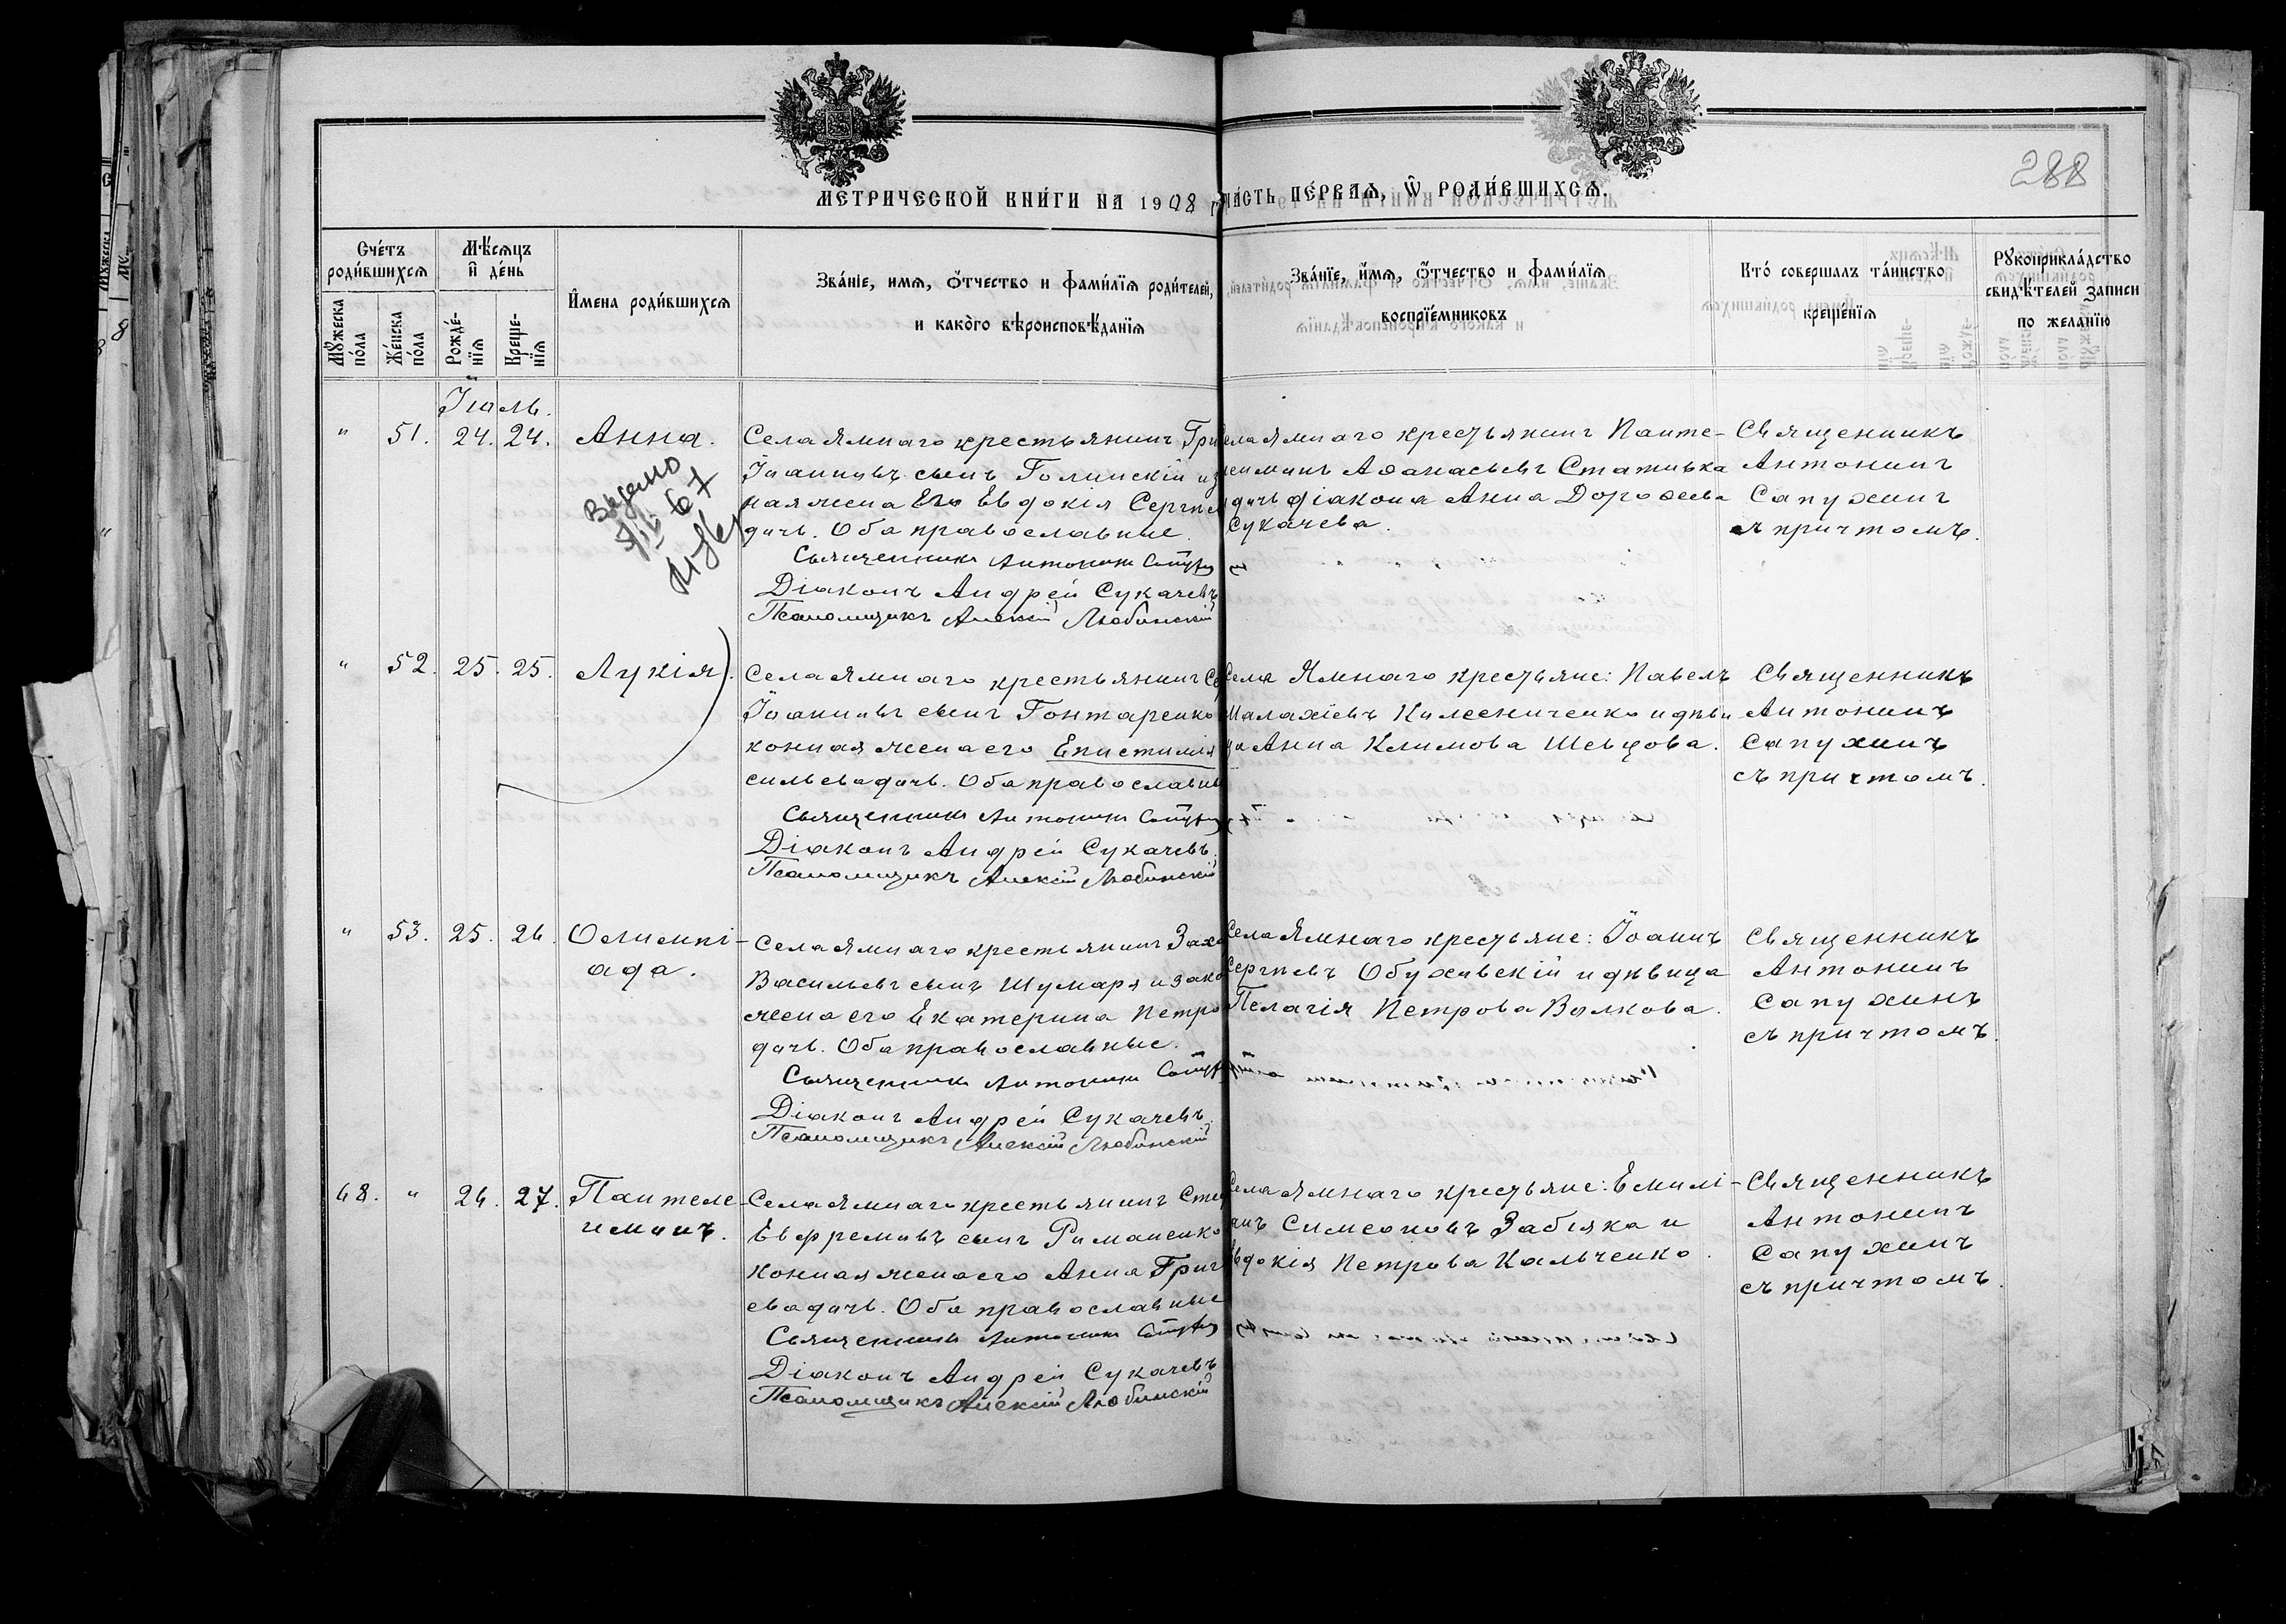 288
МЕТРИЧЕСКОЙ КНИ́ГИ НА 1908 г. ЧА́СТЬ ПЕ́РВАѦ, Ѿ РОДИ́ВШИХСѦ.
Сче́тъ роди́вшихсѧ
Мѣ́сѧцъ и҆ де́нь
И҆мена роди́вшихсѧ
Зва́нїе, имѧ, о҆́тчество и фами́лїѧ роди́телей,
и како́го вѣроисповѣ́данїѧ
Зва́нїе, и҆́мѧ, о҆́тчество и фами́лїѧ
воспрїе́мниковъ
Кто́ совершалъ та́инство
креще́нїѧ
Рꙋкоприкла́дство
свидѣ́телей записи
по жела́нїю
Мꙋ́жеска по́ла
Же́нска по́ла
Рожде́-нїѧ
Креще-нїѧ
Іюль.
" 51. 24. 24. Анна.
Села Ямнаго крестьянинъ Гри
Іоанновъ сынъ Голинскій и з
ная жена его Евдокія Сергѣе
дичъ. Оба православные.
Священникъ Антонинъ
Діаконъ Андрей Сукачевъ
Псаломщикъ Алексій Любинскій
Выдано
67
ела Ямнаго крестьянинъ Панте-
леимонъ Аѳанасьевъ Стативка
дочь діакона Анна Дороѳеева
Сукачева.
Священникъ
Антонинъ
Сапухинъ
съ причтомъ.
" 52. 25. 25. Лукія.
Села Ямнаго крестьянинъ Се
Іоанновъ сынъ Гонтаренко
конная жена его Епистимія
сильева дичъ. Оба православны
Священникъ Антонинъ
Діаконъ Андрей Сукачевъ.
Псаломщикъ Алексій Любинскій
Села Ямнаго крестьяне: Павелъ
Малахіевъ Колесниченко и дѣви
ца Анна Климова Шевцова.
Священникъ
Антонинъ
Сапухинъ
съ причтомъ.
" 53. 25. 26. Олимпі-
ада.
Села Ямнаго крестьянинъ Заха
Васильевъ сынъ Шумаря и зако
жена его Екатерина Петро
дичъ. Оба православные.
Священникъ Антонинъ
Діаконъ Андрей Сукачевъ.
Псаломщикъ Алексій Любинскій
Села Ямнаго крестьяне: Іоаннъ
Сергѣевъ Обуховскій и дѣвица
Пелагія Петрова Волкова.
Священникъ
Антонинъ
Сапухинъ
съ причтомъ.
48. " 26. 27. Пантеле-
имонъ.
Села Ямнаго крестьянинъ Сте
Евфремовъ сынъ Романенко
конная жена его Анна Григ
ева дичъ. Оба православные
Священникъ Антонинъ
Діаконъ Андрей Сукачевъ
Псаломщикъ Алексій Любинскій
Села Ямнаго крестьяне: Емилі-
анъ Симеоновъ Забіяка и
Евдокія Петрова Кальченко.
Священникъ
Антонинъ
Сапухинъ
съ причтомъ.